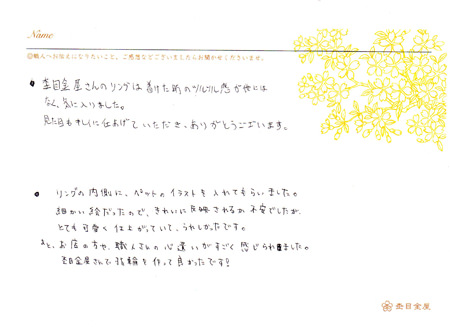 Name
◎職人へお伝えになりたいこと、ご感想などございましたらお聞かせくださいませ。
● 杢目金屋さんのリングは着けた時のツルツル感が他には
なく、気に入りました。
見た目もキレイに仕上げていただき、ありがとうございます。
● リングの内側に、ペットのイラストを入れてもらいました。
細かい絵だったので、きれいに反映されるか不安でしたが、
とても可愛く仕上がっていて、うれしかったです。
あと、お店の方や、職人さんの心遣いがすごく感じられました。
杢目金屋さんで指輪を作って良かったです!
杢目金屋